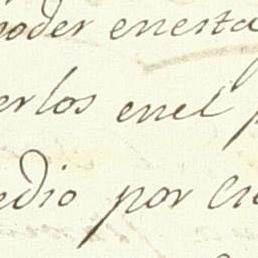 poder enesta
erlos enel p
edio por cie